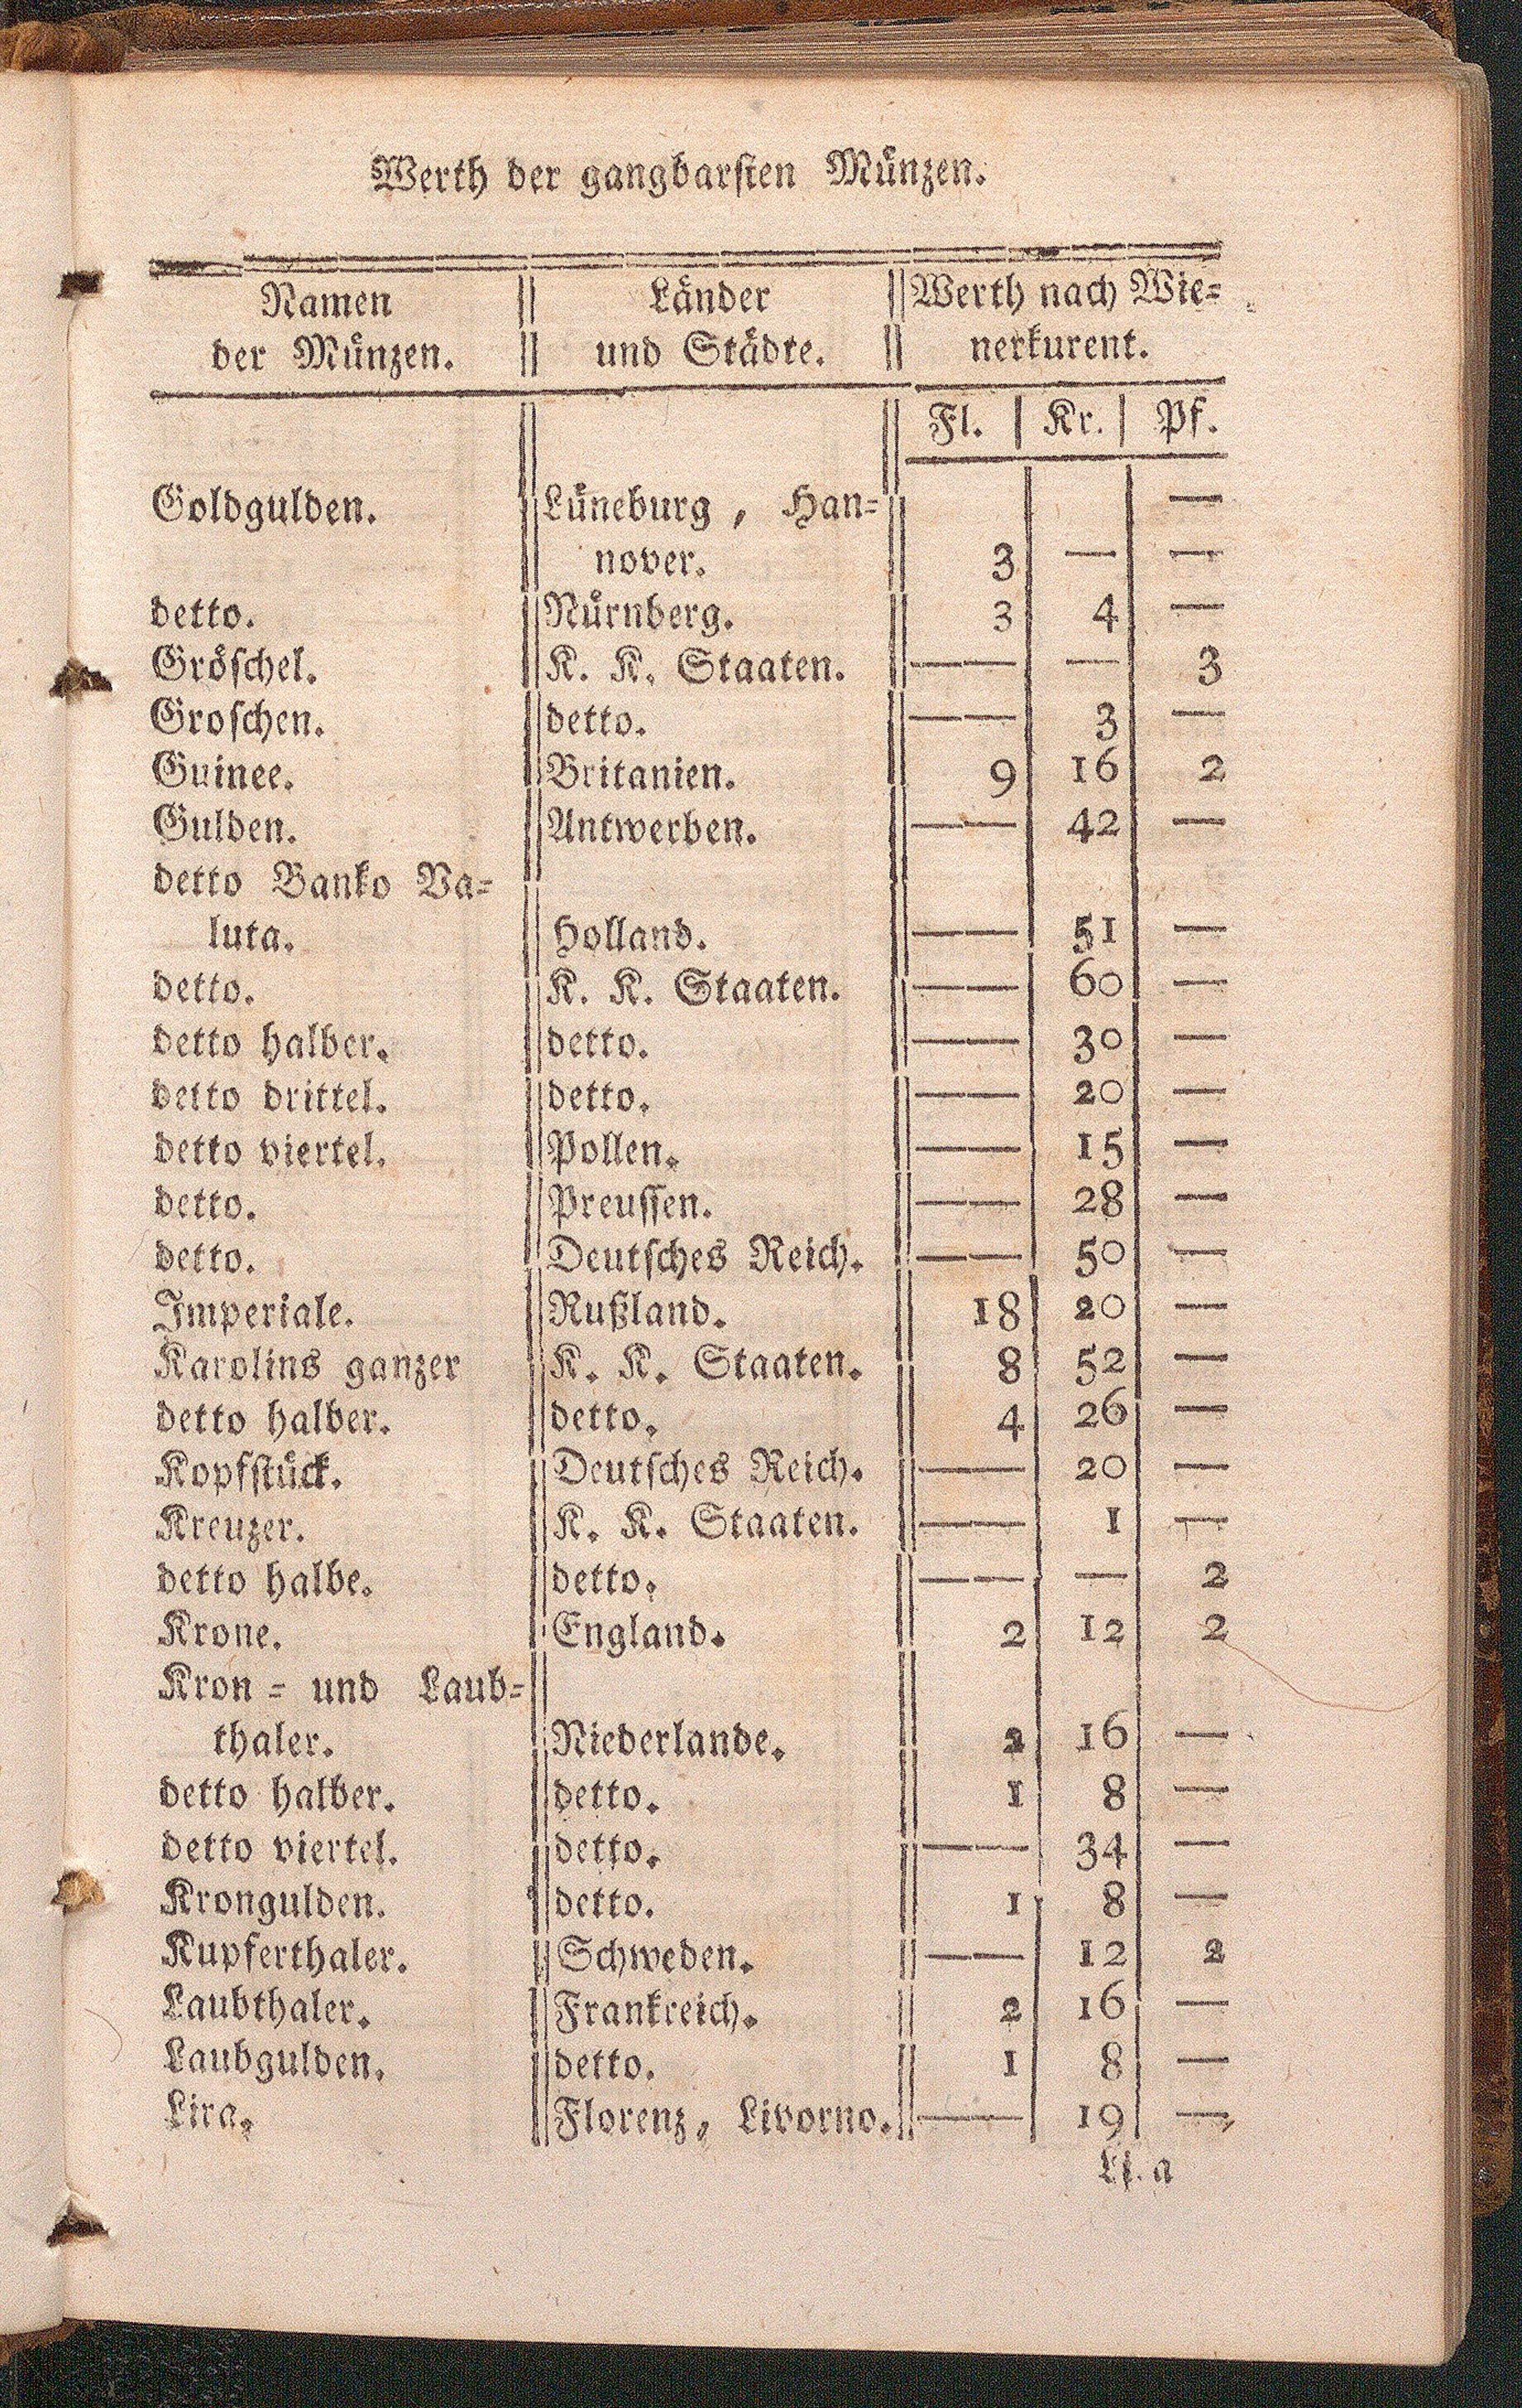 Werth der gangbarsten Münzen.
Namen || Länder || Werth nach Wie=
der Münzen. || und Städte. || nerkurent.
Fl. | Kr. | Pf.
Goldgulden. Lüneburg, Han= —
nover. 3 — —
detto. Nürnberg. 3 4 —
Gröschel. K. K. Staaten. —— — 3
Groschen. detto. —— 3 —
Guinee. Britanien. 9 16 2
Gulden. Antwerben. —— 42 —
detto Banko Va=
luta. Holland. —— 51 —
detto. K. K. Staaten. —— 60 —
detto halber. detto. —— 30 —
detto drittel. detto. —— 20 —
detto viertel. Pollen. —— 15 —
detto. Preussen. —— 28 —
detto. Deutsches Reich. —— 50 —
Imperiale. Rußland. 18 20 —
Karolins ganzer K. K. Staaten. 8 52 —
detto halber. detto. 4 26 —
Kopfstück. Deutsches Reich. —— 20 —
Kreuzer. K. K. Staaten. —— 1 —
detto halbe. detto. —— — 2
Krone. England. 2 12 2
Kron= und Laub=
thaler. Niederlande. 2 16 —
detto halber. detto. 1 8 —
detto viertel. detto. —— 34 —
Krongulden. detto. 1 8 —
Kupferthaler. Schweden. —— 12 2
Laubthaler. Frankreich. 2 16 —
Laubgulden. detto. 1 8 —
Lira. Florenz, Livorno. —— 19 —